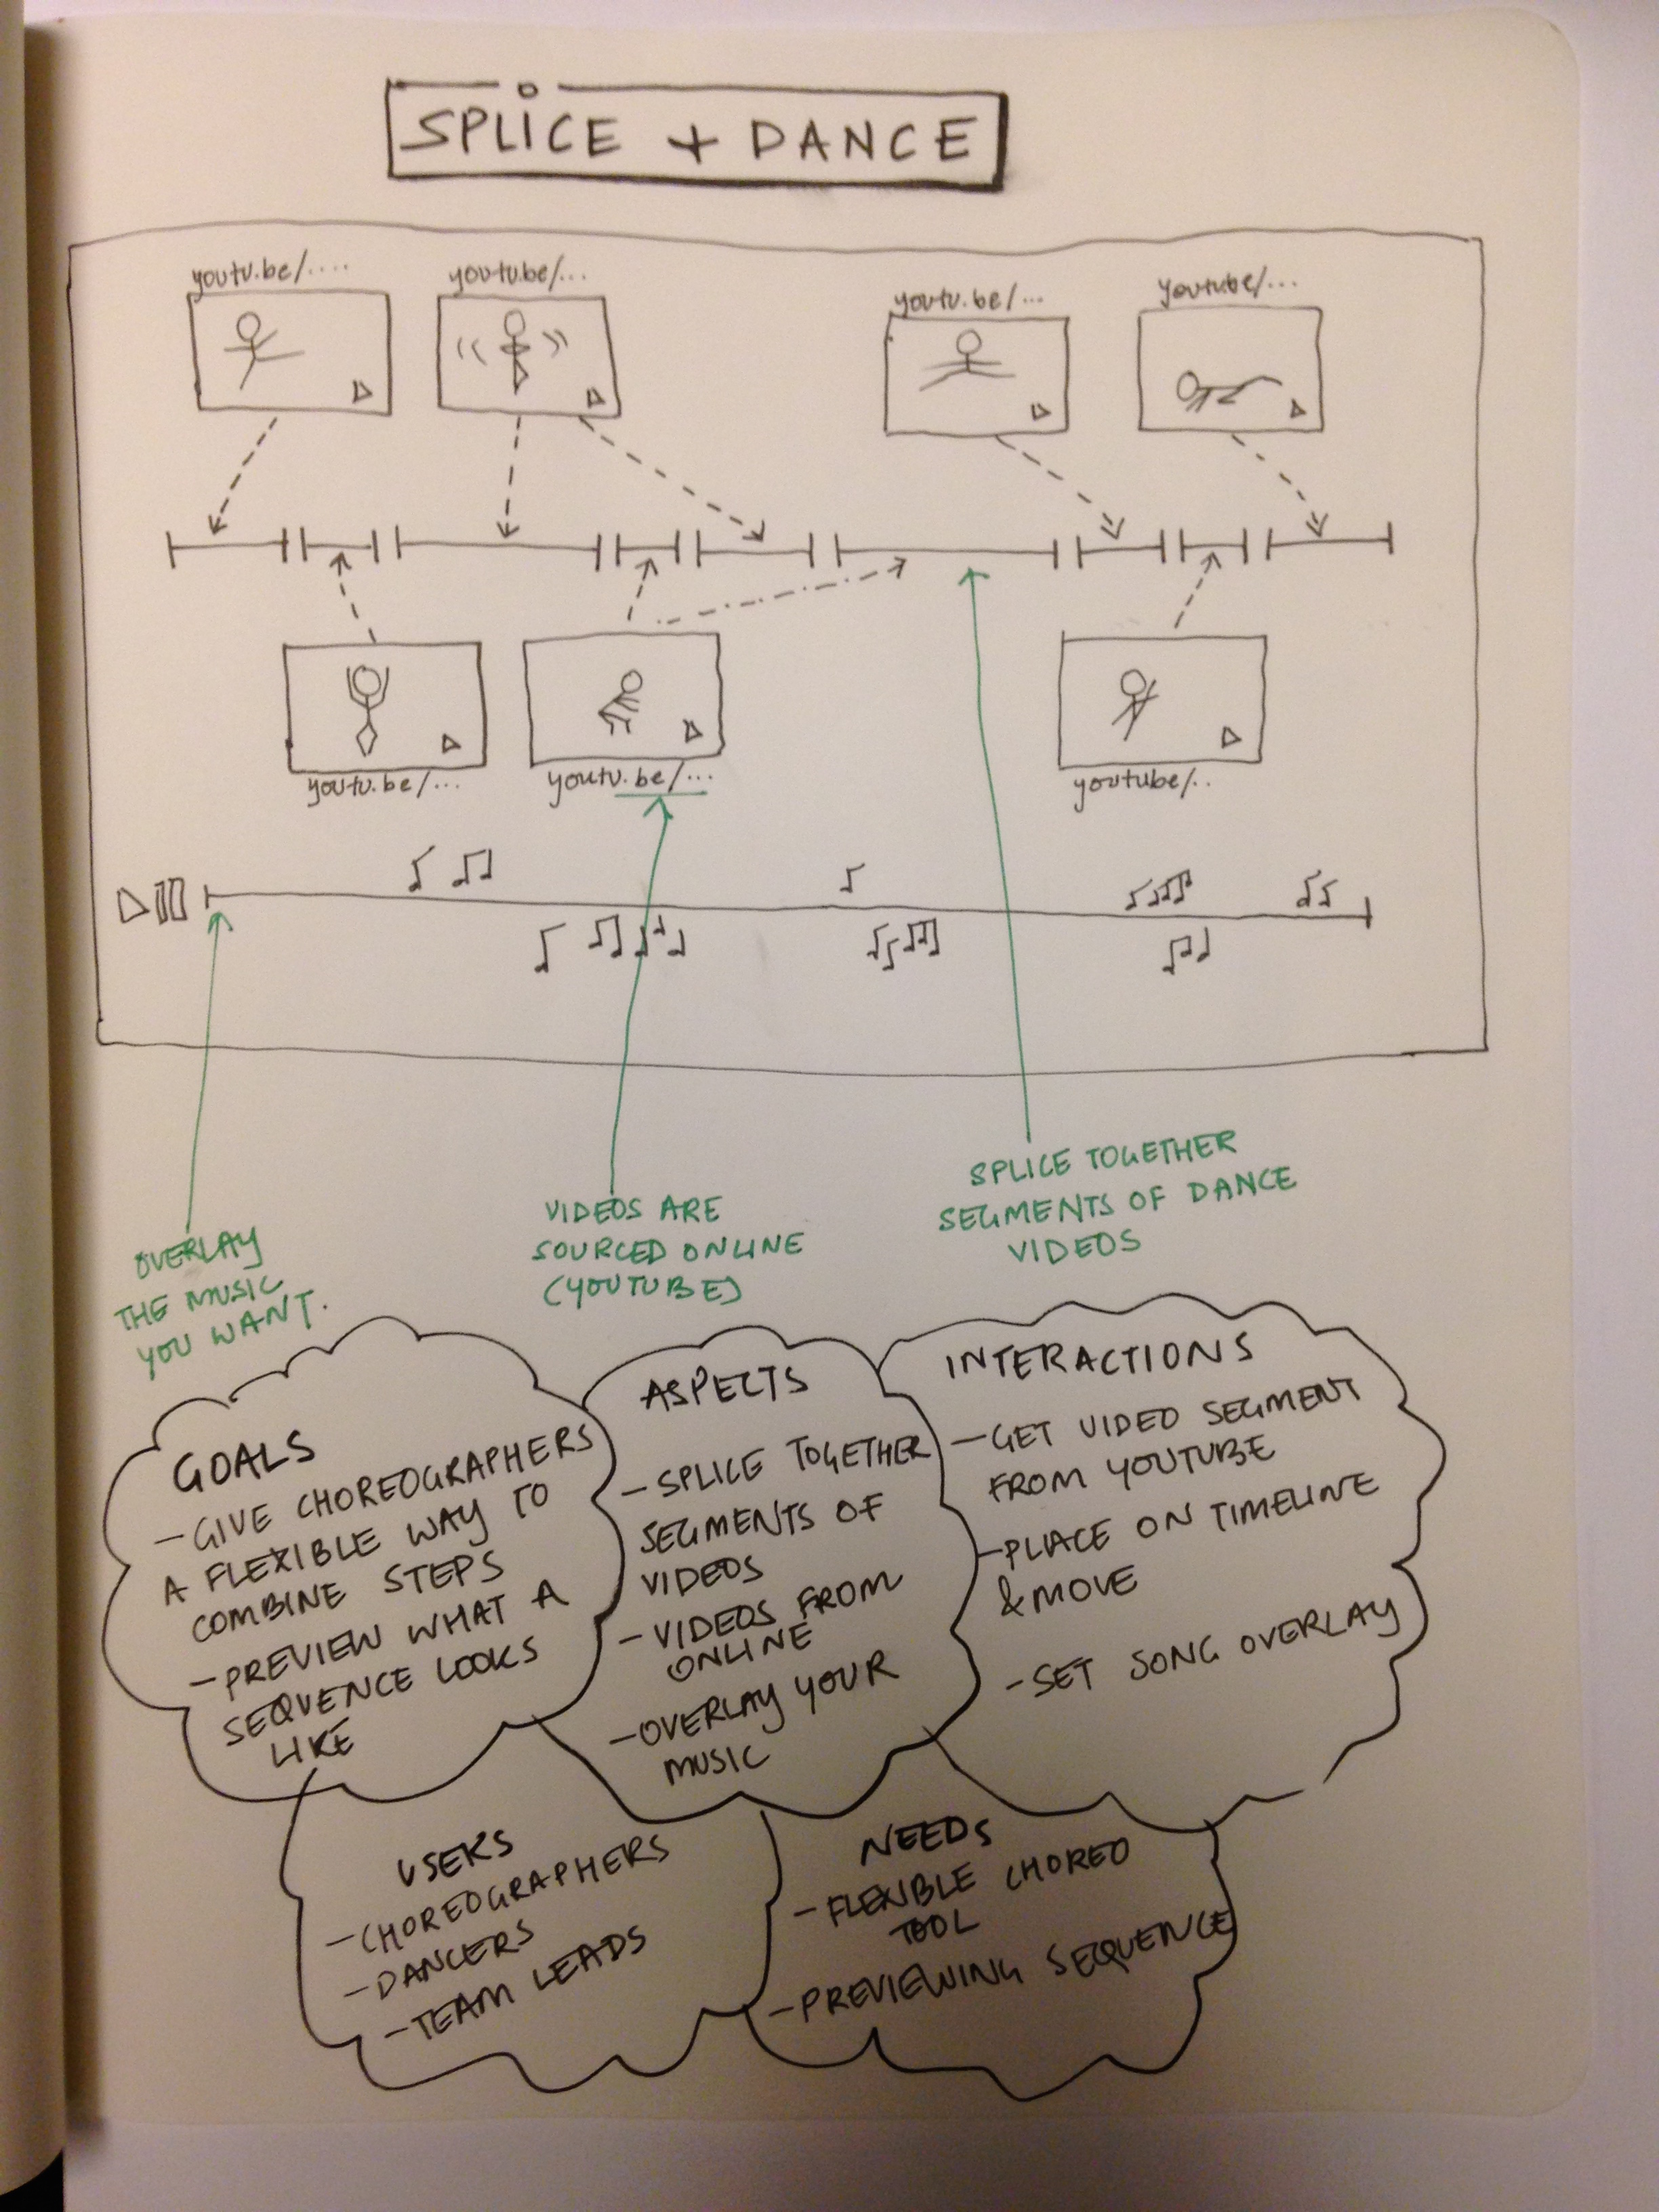 SPLICE + DANCE
youtu.be/....
youtu.be/...
youtu.be/...
youtube/...
youtu.be/...
youtu.be/...
youtube/..
OVERLAY
THE MUSIC
YOU WANT.
VIDEOS ARE
SOURCED ONLINE
(YOUTUBE)
SPLICE TOGETHER
SEGMENTS OF DANCE
VIDEOS
GOALS
- GIVE CHOREOGRAPHERS
A FLEXIBLE WAY TO
COMBINE STEPS
- PREVIEW WHAT A
SEQUENCE LOOKS
LIKE
ASPECTS
- SPLICE TOGETHER
SEGMENTS OF
VIDEOS
- VIDEOS FROM
ONLINE
- OVERLAY YOUR
MUSIC
INTERACTIONS
- GET VIDEO SEGMENT
FROM YOUTUBE
- PLACE ON TIMELINE
& MOVE
- SET SONG OVERLAY
USERS
- CHOREOGRAPHERS
- DANCERS
- TEAM LEADS
NEEDS
- FLEXIBLE CHOREO
TOOL
- PREVIEWING SEQUENCE